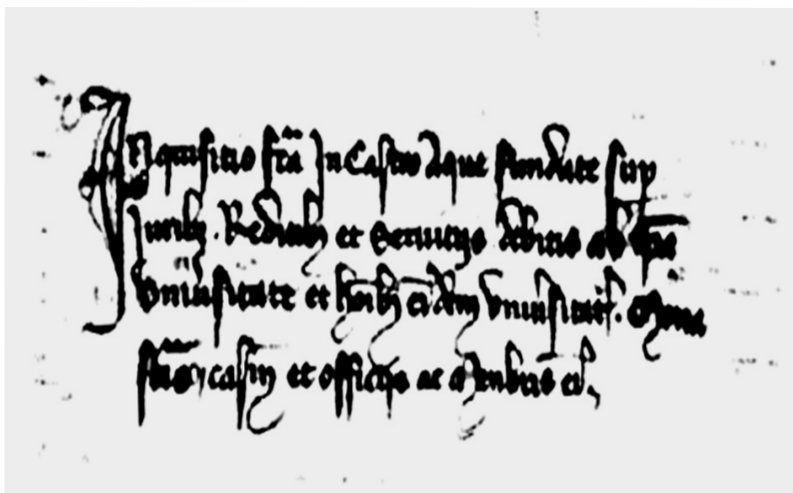 Inquisitio fc̃a in Castro Aque fundate sup
Iurib; Redditib; et seruitijs debitis ab
vniũsitate et hoĩb; eiusdem vniũsitatis. Mona
casin̄ et officijs ac membris ei